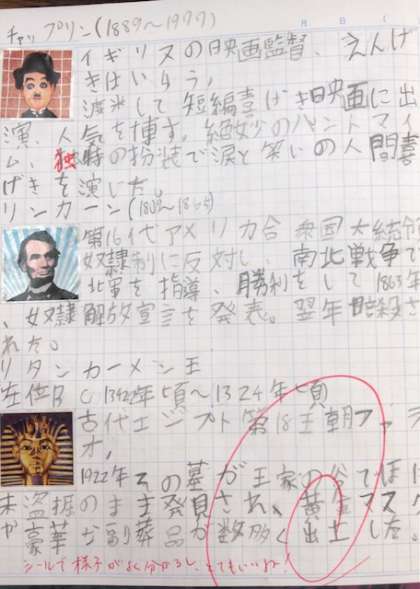 チャップリン(1889〜1977)
月 日 (
イギリスの映画監督、えんげ
きはいゆう。
渡米して短編喜げき映画に出
演、人気を博す。絶妙のパントマイ
ム、独特の扮装で涙と笑いの人間喜
げきを演じた。
リンカーン(1809〜1865)
第16代アメリカ合衆国大統領
奴隷制に反対し、南北戦争で
北軍を指導、勝利をして1863年
、奴隷解放宣言を発表。翌年暗殺さ
れた。
ツタンカーメン王
在位B.C1342年頃〜1324年頃
古代エジプト第18王朝ファラ
オ。
1922年その墓が王家の谷でほぼ
未盗掘のまま発見され、黄金マスク
や豪華な副葬品が数多く出土した。
シールで様子がよく分かるし、とてもいいね!